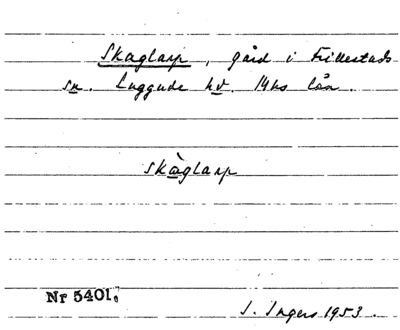 Skaglarp, gård i Fillestads
sn. Luggude hd. Mhs län.
skàglarp
Nr 5401.
I. Ingers 1953.